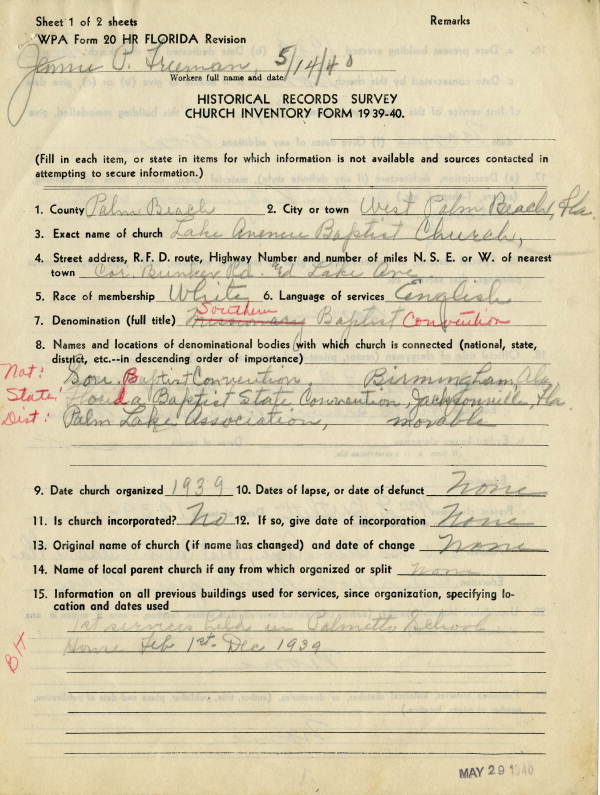 Sheet 1 of 2 sheets Remarks
WPA Form 20 HR FLORIDA Revision
Jennie P. Freeman, 5/14/40
Workers full name and date
HISTORICAL RECORDS SURVEY
CHURCH INVENTORY FORM 1939-40.
(Fill in each item, or state in items for which information is not available and sources contacted in
attempting to secure information.)
1. County Palm Beach 2. City or town West Palm Beach, Fla.
3. Exact name of church Lake Avenue Baptist Church,
4. Street address, R. F. D. route, Highway Number and number of miles N. S. E. or W. of nearest
town Cor. Bunker Rd. Lake Ave.
5. Race of membership White 6. Language of services English
Southern
7. Denomination (full title) Missionary Baptist Convention
8. Names and locations of denominational bodies with which church is connected (national, state,
district, etc.--in descending order of importance)
Nat: Sou. Baptist Convention, Birmingham, Ala.
State: Florida Baptist State Convention, Jacksonville, Fla.
Dist: Palm Lake Association, movable
9. Date church organized 1939 10. Dates of lapse, or date of defunct None
11. Is church incorporated? No 12. If so, give date of incorporation None
13. Original name of church (if name has changed) and date of change None
14. Name of local parent church if any from which organized or split None
15. Information on all previous buildings used for services, since organization, specifying lo-
cation and dates used
1st services held in Palmetto School
House Feb 1st - Dec 1939
BH
MAY 29 1940